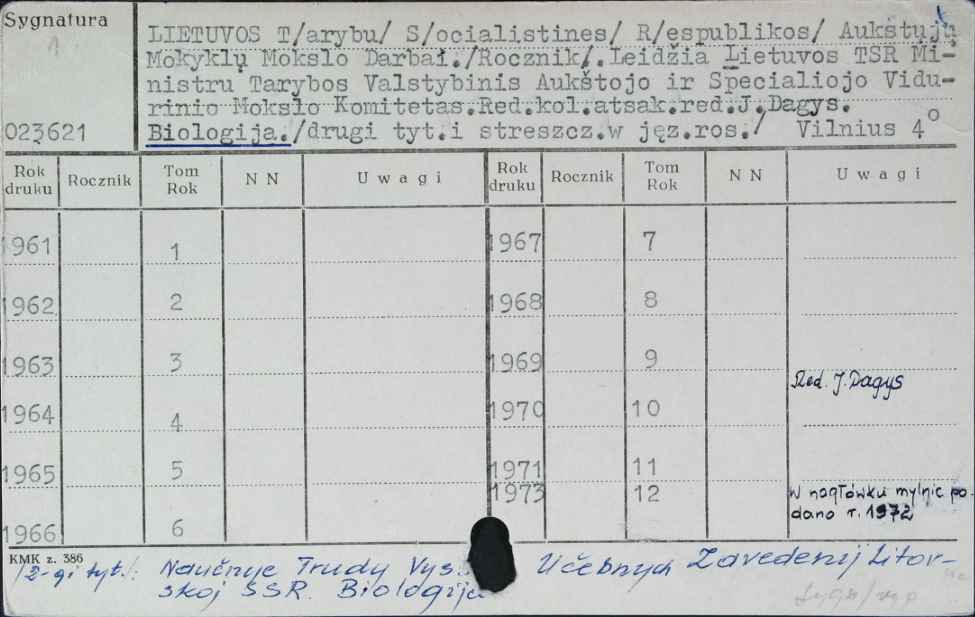 Sygnatura
1
023621
LIETUVOS T/arybu/ S/ocialistines/ R/espublikos/ Aukštųjų
Mokyklų Mokslo Darbai./Rocznik/.Leidžia Lietuvos TSR Mi-
nistru Tarybos Valstybinis Aukštojo ir Specialiojo Vidu-
rinio Mokslo Komitetas.Red.kol.atsak.red.J.Dagys.
Biologija./drugi tyt.i streszcz.w jęz.ros./ Vilnius 4°
Rok druku Rocznik Tom Rok NN Uwagi Rok druku Rocznik Tom Rok NN Uwagi
1961 1 1967 7
1962 2 1968 8
1963 3 1969 9
Red. J. Dagys
1964 4 1970 10
1965 5 1971 11
1973 12 W nagłówku mylnie po-
dano r. 1972
1966 6
KMK z. 386
/2-gi tyt./: Naučnye Trudy Učebnych Zavedenij Litov-
skoj SSR. Biologija